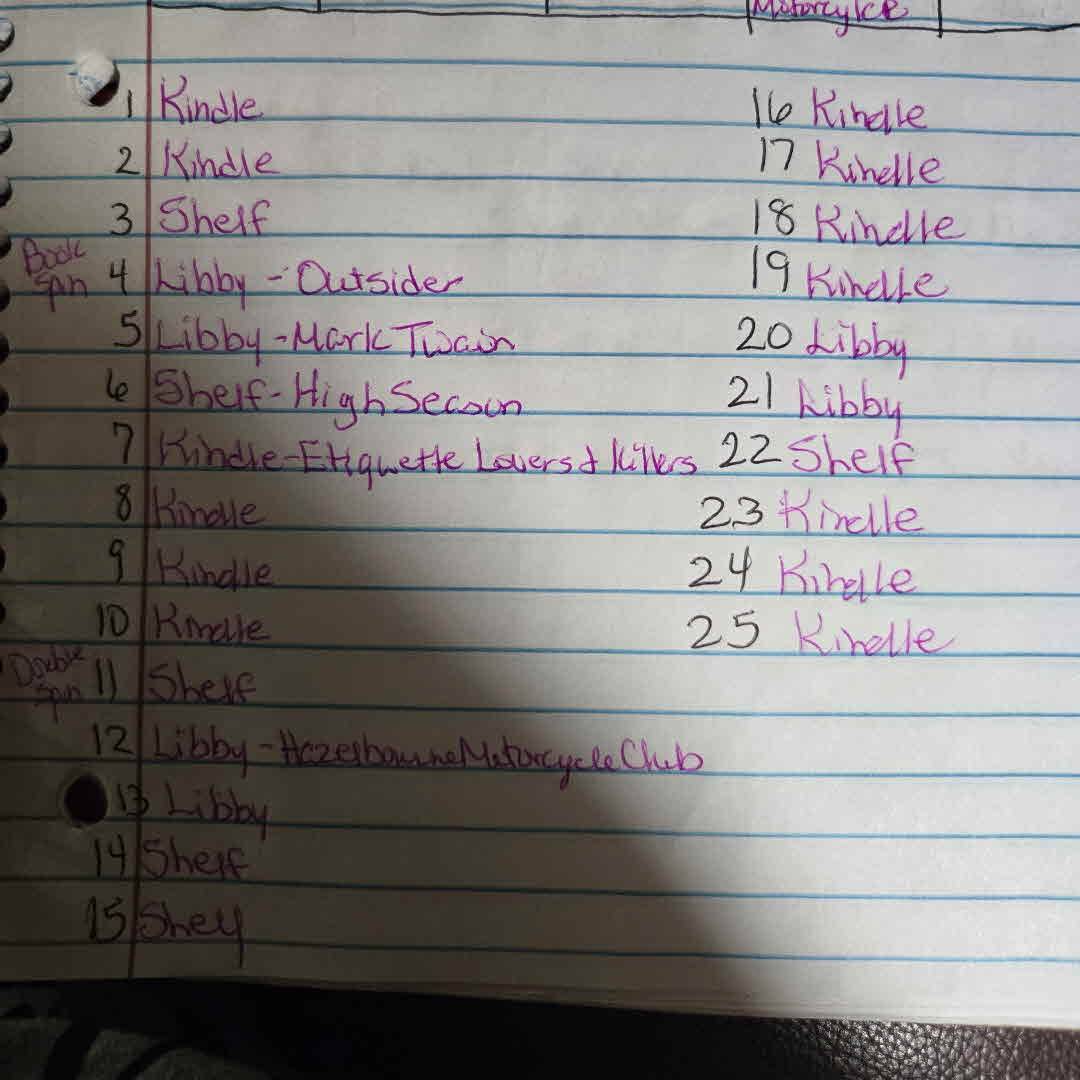 Motorcylce
1 Kindle
2 Kindle
3 Shelf
Book
Spin 4 Libby - Outsider
5 Libby - Mark Twain
6 Shelf - High Season
7 Kindle - Etiquette Lovers & Killers
8 Kindle
9 Kindle
10 Kindle
Double
Spin 11 Shelf
12 Libby - Hazelbourne Motorcycle Club
13 Libby
14 Shelf
15 Shelf
16 Kindle
17 Kindle
18 Kindle
19 Kindle
20 Libby
21 Libby
22 Shelf
23 Kindle
24 Kindle
25 Kindle